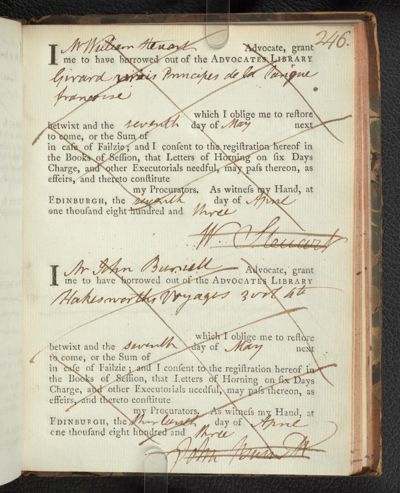 246.
I Mr William Steuart Advocate, grant
me to have borrowed out of the ADVOCATES LIBRARY
Girard vrais Principes de la Langue
francoise
which I oblige me to reſtore
betwixt and the seventh day of May next
to come, or the Sum of
in caſe of Failzie; and I conſent to the regiſtration hereof in
the Books of Seſſion, that Letters of Horning on ſix Days
Charge, and other Executorials needful, may paſs thereon, as
effeirs, and thereto conſtitute
my Procurators. As witneſs my Hand, at
EDINBURGH, the day of April
one thouſand eight hundred and three
W. Steuart
I Mr John Burnett Advocate, grant
me to have borrowed out of the ADVOCATES LIBRARY
Hakesworths Voyages 3 vol 4to
which I oblige me to reſtore
betwixt and the seventh day of May next
to come, or the Sum of
in caſe of Failzie; and I conſent to the regiſtration hereof in
the Books of Seſſion, that Letters of Horning on ſix Days
Charge, and other Executorials needful, may paſs thereon, as
effeirs, and thereto conſtitute
my Procurators. As witneſs my Hand, at
EDINBURGH, the thirteenth day of April
one thouſand eight hundred and three
John Burnett